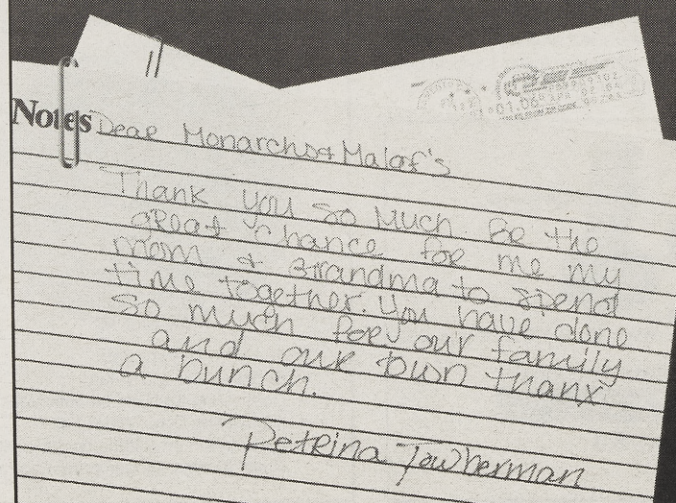 Notes
Dear Monarchs & Maloof's
Thank you so much for the
great chance for me my
mom & grandma to spend
time together. You have done
so much for our family
and our town thanx
a bunch.
Petrina Towherman
01.06